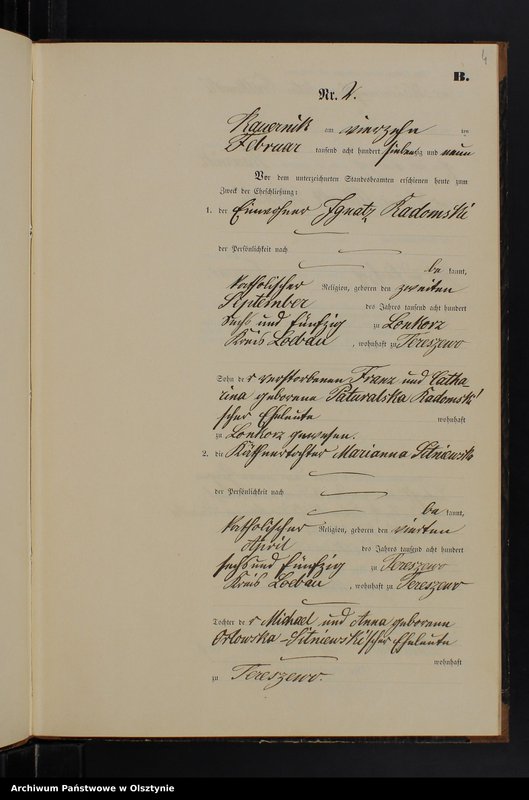 4
B.
Nr. 2.
Kauernik am vierzehn ten
Februar tausend acht hundert siebenzig und neun
Vor dem unterzeichneten Standesbeamten erschienen heute zum
Zweck der Eheschließung:
1. der Einwohner Ignatz Radomski
der Persönlichkeit nach
be kannt,
katholischer Religion, geboren den zweiten
September des Jahres tausend acht hundert
sechs und fünfzig zu Lonkorz
Kreis Loebau, wohnhaft zu Tereszewo
Sohn der verstorbenen Franz und Catha
rina geborene Paturalska Radomski'
scher Eheleute wohnhaft
zu Lonkorz gewesen.
2. die Käthnertochter Marianna Sitniewska
der Persönlichkeit nach
be kannt,
katholischer Religion, geboren den vierten
April des Jahres tausend acht hundert
sechs und fünfzig zu Tereszewo
Kreis Loebau, wohnhaft zu Tereszewo
Tochter der Michael und Anna geborene
Orlowska-Sitniewski'scher Eheleute
wohnhaft
zu Tereszewo.
Archiwum Państwowe w Olsztynie